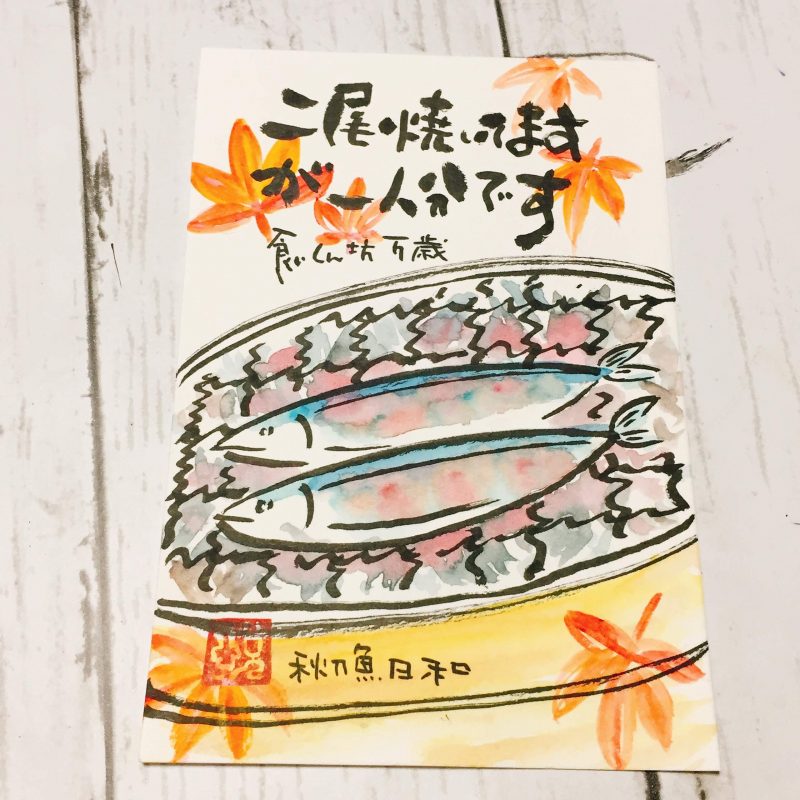 二尾焼いてます
が一人分です
食いしん坊万歳
秋刀魚日和